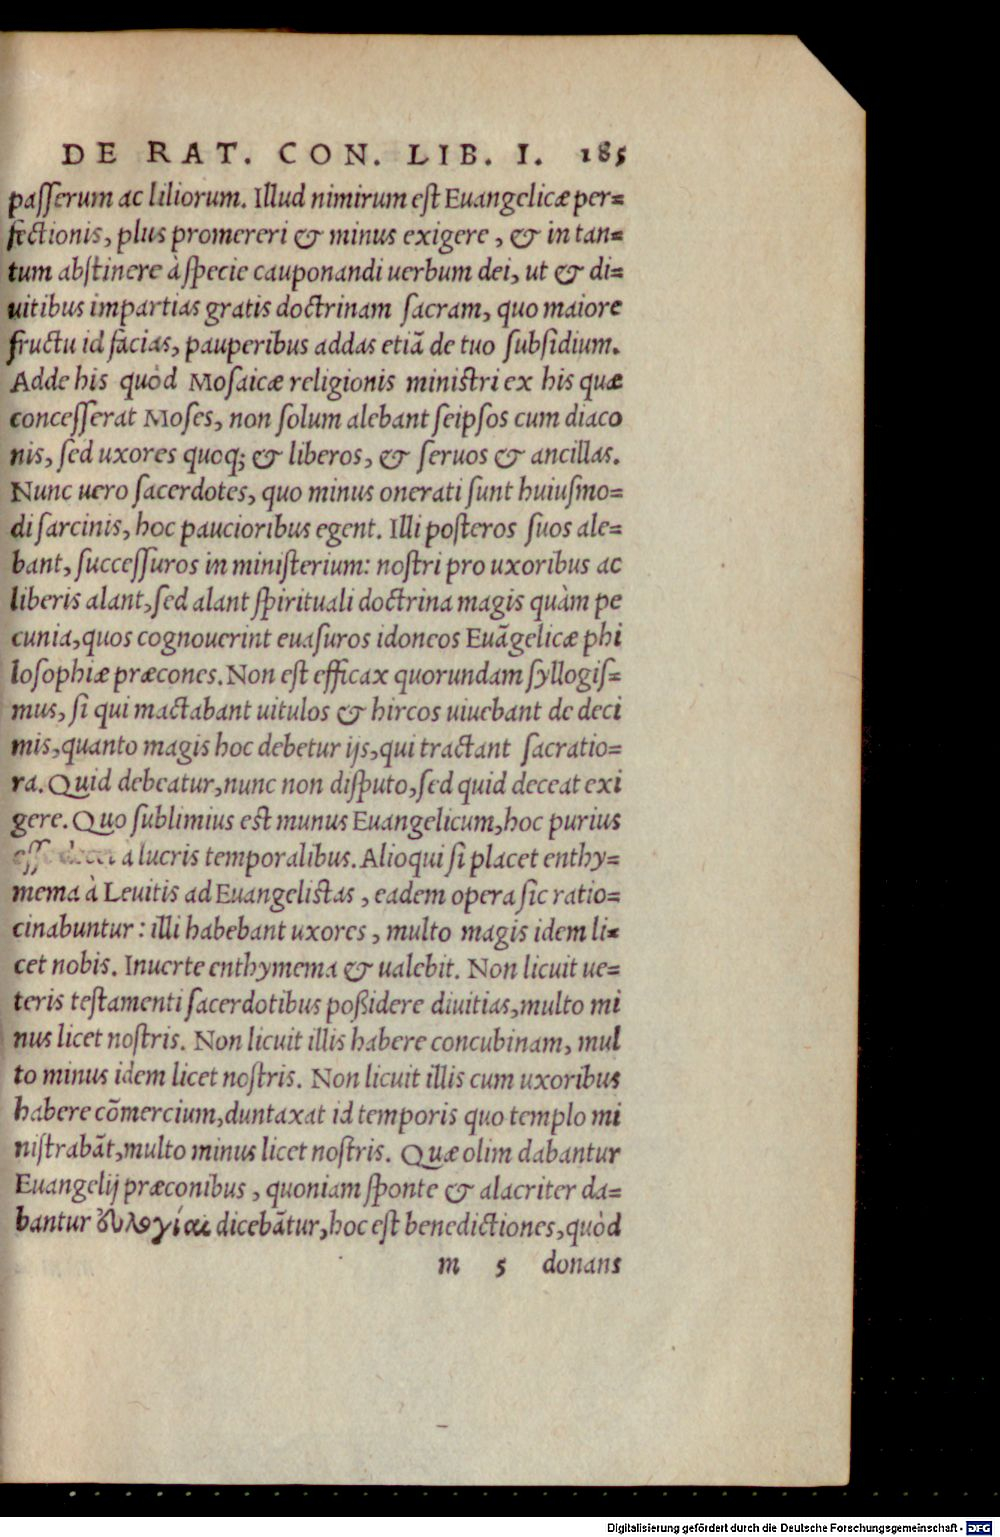 DE RAT. CON. LIB. I. 185
paſſerum ac liliorum. Illud nimirum eſt Euangelicæ per=
fectionis, plus promereri & minus exigere, & in tan=
tum abſtinere à ſpecie cauponandi uerbum dei, ut & di=
uitibus impartias gratis doctrinam ſacram, quo maiore
fructu id facias, pauperibus addas etiã de tuo ſubſidium.
Adde his quòd Moſaicæ religionis miniſtri ex his quæ
conceſſerat Moſes, non ſolum alebant ſeipſos cum diaco
nis, ſed uxores quoq; & liberos, & ſeruos & ancillas.
Nunc uero ſacerdotes, quo minus onerati ſunt huiuſmo=
di ſarcinis, hoc paucioribus egent. Illi poſteros ſuos ale=
bant, ſucceſſuros in miniſterium: noſtri pro uxoribus ac
liberis alant, ſed alant ſpirituali doctrina magis quàm pe
cunia, quos cognouerint euaſuros idoneos Euãgelicæ phi
loſophiæ præcones. Non eſt efficax quorundam ſyllogiſ=
mus, ſi qui mactabant uitulos & hircos uiuebant de deci
mis, quanto magis hoc debetur ijs, qui tractant ſacratio=
ra. Quid debeatur, nunc non diſputo, ſed quid deceat exi
gere. Quo ſublimius eſt munus Euangelicum, hoc purius
eſſe decet à lucris temporalibus. Alioqui ſi placet enthy=
mema à Leuitis ad Euangeliſtas, eadem opera ſic ratio=
cinabuntur: illi habebant uxores, multo magis idem li=
cet nobis. Inuerte enthymema & ualebit. Non licuit ue=
teris teſtamenti ſacerdotibus poßidere diuitias, multo mi
nus licet noſtris. Non licuit illis habere concubinam, mul
to minus idem licet noſtris. Non licuit illis cum uxoribus
habere cõmercium, duntaxat id temporis quo templo mi
niſtrabãt, multo minus licet noſtris. Quæ olim dabantur
Euangelij præconibus, quoniam ſponte & alacriter da=
bantur ευλογίαι dicebãtur, hoc eſt benedictiones, quòd
m 5 donans
Digitalisierung gefördert durch die Deutsche Forschungsgemeinschaft - DFG